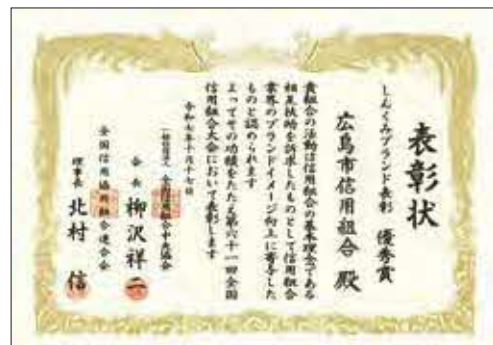 表彰状
しんくみブランド表彰　優秀賞
広島市信用組合　殿
貴組合の活動は信用組合の基本理念である
相互扶助を訴求したものとして信用組合
業界のブランドイメージ向上に寄与した
ものと認められます
よってその功績をたたえ第六十一回全国
信用組合大会において表彰します
令和七年十月十七日
一般社団法人　全国信用組合中央協会
会長　柳沢祥二
全国信用協同組合連合会
理事長　北村　信